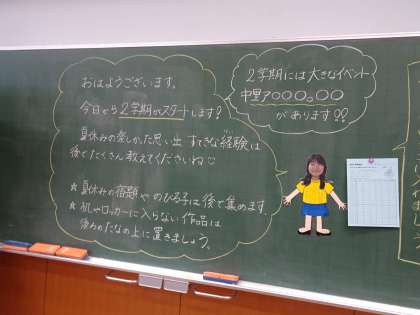 おはようございます。
今日から2学期がスタートします!
夏休みの楽しかった思い出 すてきな経験は
後でたくさん教えてくださいね☺
★夏休みの宿題や のびる子は後で集めます。
★机やロッカーに入らない作品は
後ろのたなの上に置きましょう。
2学期には大きなイベント
があります!?